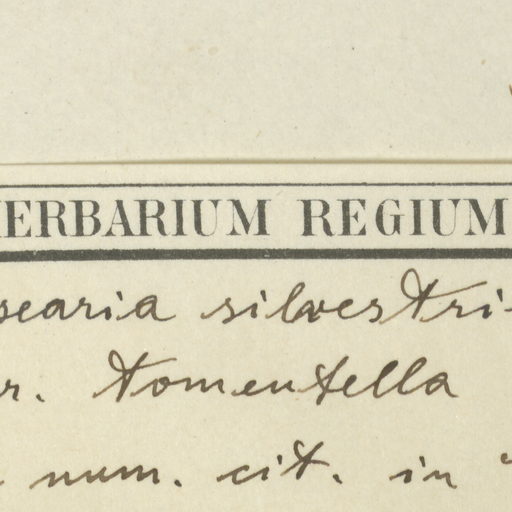 HERBARIUM REGIUM
searia silvestri
r. tomentella
num. cit. in "